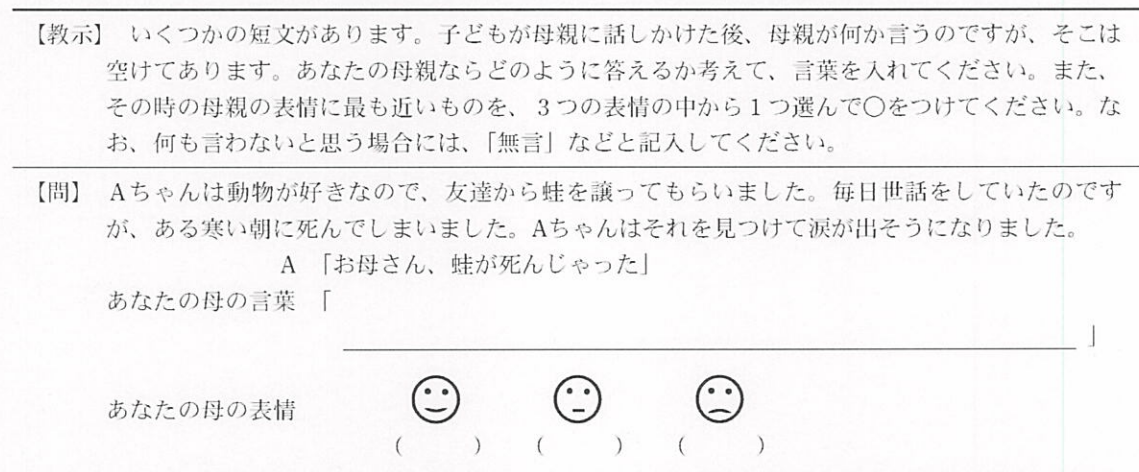 【教示】 いくつかの短文があります。子どもが母親に話しかけた後、母親が何か言うのですが、そこは
空けてあります。あなたの母親ならどのように答えるか考えて、言葉を入れてください。また、
その時の母親の表情に最も近いものを、3つの表情の中から1つ選んで○をつけてください。な
お、何も言わないと思う場合には、「無言」などと記入してください。
【問】 Aちゃんは動物が好きなので、友達から蛙を譲ってもらいました。毎日世話をしていたのです
が、ある寒い朝に死んでしまいました。Aちゃんはそれを見つけて涙が出そうになりました。
A 「お母さん、蛙が死んじゃった」
あなたの母の言葉 「
」
あなたの母の表情
( ) ( ) ( )